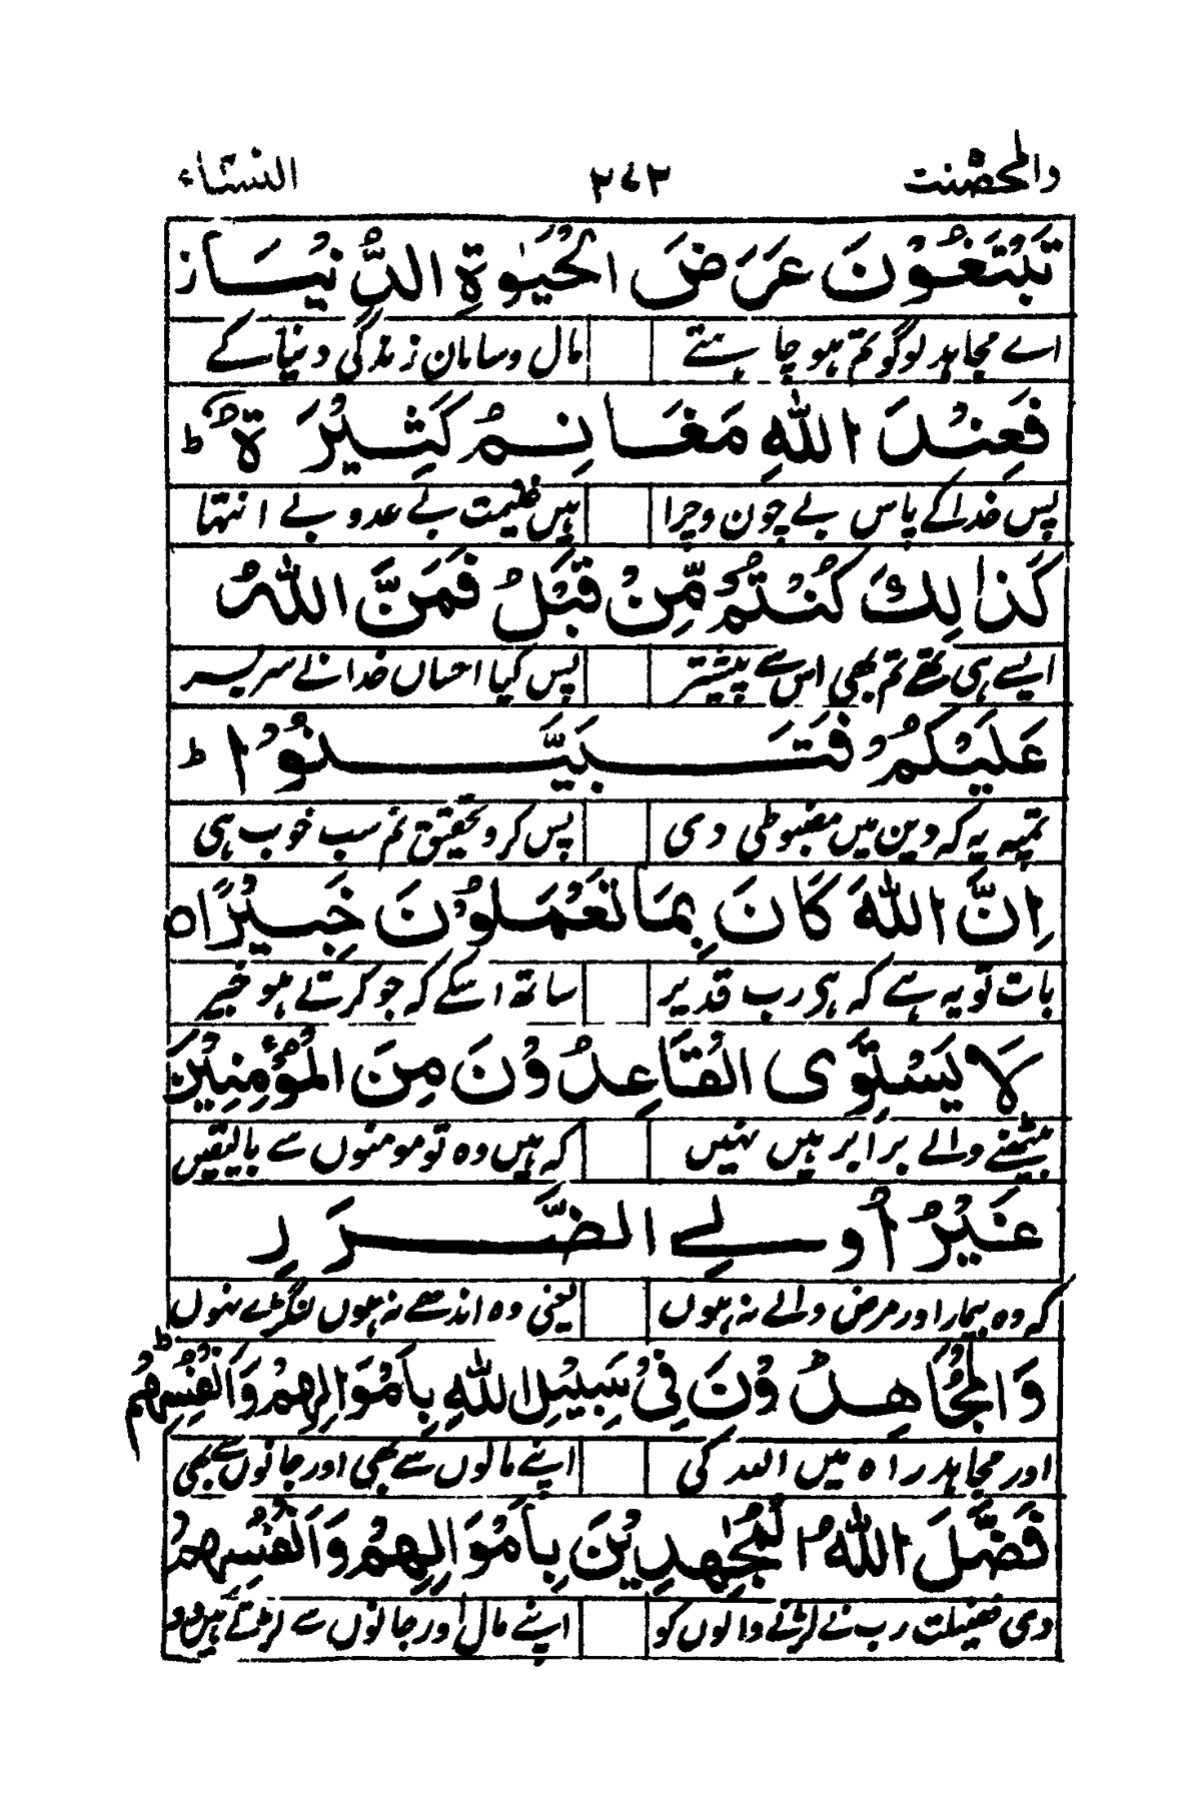 والمحصنت ۲۷۲ النساء
تَبْتَغُوْنَ عَرَضَ الْحَيٰوةِ الدُّنْيَا ز
اے مجاہد لوگو تم ہو چاہتے مال و سامان زندگی دنیا کے
فَعِنْدَ اللّٰهِ مَغَانِمُ كَثِيْرَةٌ ؕ
پس خدا کے پاس بے چون و چرا ہیں غنیمت بے عدد بے انتہا
كَذَالِكَ كُنْتُمْ مِّنْ قَبْلُ فَمَنَّ اللّٰهُ
ایسے ہی تھے تم بھی اس سے پیشتر پس کیا احساں خدا نے سر بسر
عَلَيْكُمْ فَتَبَيَّنُوْا ؕ
تمپہ یہ کہ دین میں مضبوطی دی پس کرو تحقیق تم سب خوب ہی
اِنَّ اللّٰهَ كَانَ بِمَا تَعْمَلُوْنَ خَبِيْرًا ○
بات تو یہ ہے کہ ہی رب قدیر ساتھ اسکے کہ جو کرتے ہو خبیر
لَا يَسْتَوِى الْقَاعِدُوْنَ مِنَ الْمُؤْمِنِيْنَ
بیٹھنے والے برابر ہیں نہیں کہ ہیں وہ تو مومنوں سے بالیقیں
غَيْرُ اُولِى الضَّرَرِ
کہ وہ بیمار اور مرض والے نہ ہوں یعنی وہ اندھے نہ ہوں لنگڑے نہوں
وَالْمُجَاهِدُوْنَ فِىْ سَبِيْلِ اللّٰهِ بِاَمْوَالِهِمْ وَاَنْفُسِهِمْ ؕ
اور مجاہد راہ میں اللہ کی اپنے مالوں سے بھی اور جانوں سے بھی
فَضَّلَ اللّٰهُ الْمُجٰهِدِيْنَ بِاَمْوَالِهِمْ وَاَنْفُسِهِمْ
دی فضیلت رب نے لڑنے والوں کو اپنے مال اور جانوں سے لڑتے ہیں جو